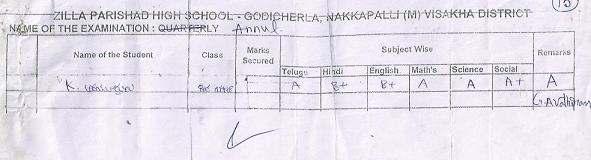 13
ZILLA PARISHAD HIGH SCHOOL - GODICHERLA, NAKKAPALLI (M) VISAKHA DISTRICT
NAME OF THE EXAMINATION : QUARTERLY Annul
Name of the Student Class Marks Secured Subject Wise Remarks
Telugu Hindi English Math's Science Social
K. A B+ B+ A A A+ A